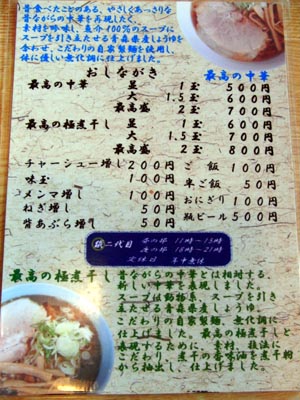 昔食べたことのある、やさしくあっさりな
昔ながらの中華を再現したく、
素材を吟味し、煮干100%のスープに
スープを引き立たせる青森県産しょうゆを
合わせ、こだわりの自家製麺を使用し、
体に優しい無化調に仕上げました。
おしながき
最高の中華
並 1玉 500円
大 1.5玉 600円
最高盛 2玉 700円
最高の極煮干し
並 1玉 600円
大 1.5玉 700円
最高盛 2玉 800円
チャーシュー増し 200円
味玉 100円
メンマ増し 100円
ねぎ増し 50円
背あぶら増し 50円
ご飯 100円
半ご飯 50円
おにぎり 100円
瓶ビール 500円
二代目
昼の部 11時~15時
夜の部 18時~21時
定休日 年中無休
最高の極煮干し
昔ながらの中華とは相対する、
新しい中華を表現しました。
スープは動物系、スープを引き
立たせる青森県産しょうゆ
こだわりの自家製麺、無化調に
仕上げました。最高の極煮干しを
表現するために、素材、技法に
こだわり、煮干の香味油を煮干粉
から抽出し、仕上げました。